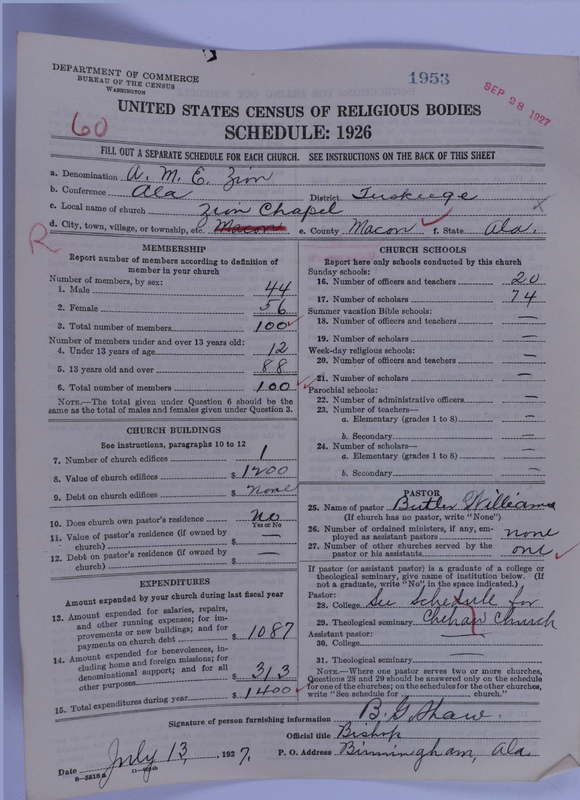 DEPARTMENT OF COMMERCE
BUREAU OF THE CENSUS
WASHINGTON
1953
SEP 28 1927
60
UNITED STATES CENSUS OF RELIGIOUS BODIES
SCHEDULE: 1926
FILL OUT A SEPARATE SCHEDULE FOR EACH CHURCH. SEE INSTRUCTIONS ON THE BACK OF THIS SHEET
a. Denomination A. M. E. Zion
b. Conference Ala District Tuskeege
c. Local name of church Zion Chapel
d. City, town, village, or township, etc. Macon e. County Macon f. State Ala.
R
MEMBERSHIP
Report number of members according to definition of
member in your church
Number of members, by sex:
1. Male 44
2. Female 56
3. Total number of members 100
Number of members under and over 13 years old:
4. Under 13 years of age 12
5. 13 years old and over 88
6. Total number of members 100
NOTE.—The total given under Question 6 should be the
same as the total of males and females given under Question 3.
CHURCH BUILDINGS
See instructions, paragraphs 10 to 12
7. Number of church edifices 1
8. Value of church edifices $ 1200
9. Debt on church edifices $ none
10. Does church own pastor's residence No
Yes or No
11. Value of pastor's residence (if owned by
church) $ —
12. Debt on pastor's residence (if owned by
church) $ —
EXPENDITURES
Amount expended by your church during last fiscal year
13. Amount expended for salaries, repairs,
and other running expenses; for im-
provements or new buildings; and for
payments on church debt $ 1087
14. Amount expended for benevolences, in-
cluding home and foreign missions; for
denominational support; and for all
other purposes $ 313
15. Total expenditures during year $ 1400
CHURCH SCHOOLS
Report here only schools conducted by this church
Sunday schools:
16. Number of officers and teachers 20
17. Number of scholars 74
Summer vacation Bible schools:
18. Number of officers and teachers —
19. Number of scholars —
Week-day religious schools:
20. Number of officers and teachers —
21. Number of scholars —
Parochial schools:
22. Number of administrative officers —
23. Number of teachers—
a. Elementary (grades 1 to 8) —
b. Secondary —
24. Number of scholars—
a. Elementary (grades 1 to 8) —
b. Secondary —
PASTOR
25. Name of pastor Butler Williams
(If church has no pastor, write "None")
26. Number of ordained ministers, if any, em-
ployed as assistant pastors none
27. Number of other churches served by the
pastor or his assistants one
If pastor (or assistant pastor) is a graduate of a college or
theological seminary, give name of institution below. (If
not a graduate, write "No", in the space indicated.)
Pastor:
28. College See schedule for
29. Theological seminary Chehaw Church
Assistant pastor:
30. College —
31. Theological seminary —
NOTE.—Where one pastor serves two or more churches,
Questions 28 and 29 should be answered only on the schedule
for one of the churches; on the schedules for the other churches,
write "See schedule for church."
Signature of person furnishing information B. G. Shaw.
Official title Bishop
Date July 13, 1927. P. O. Address Birmingham, Ala.